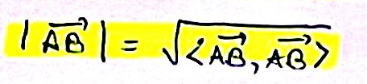 |AB⃗| = √⟨AB⃗, AB⃗⟩